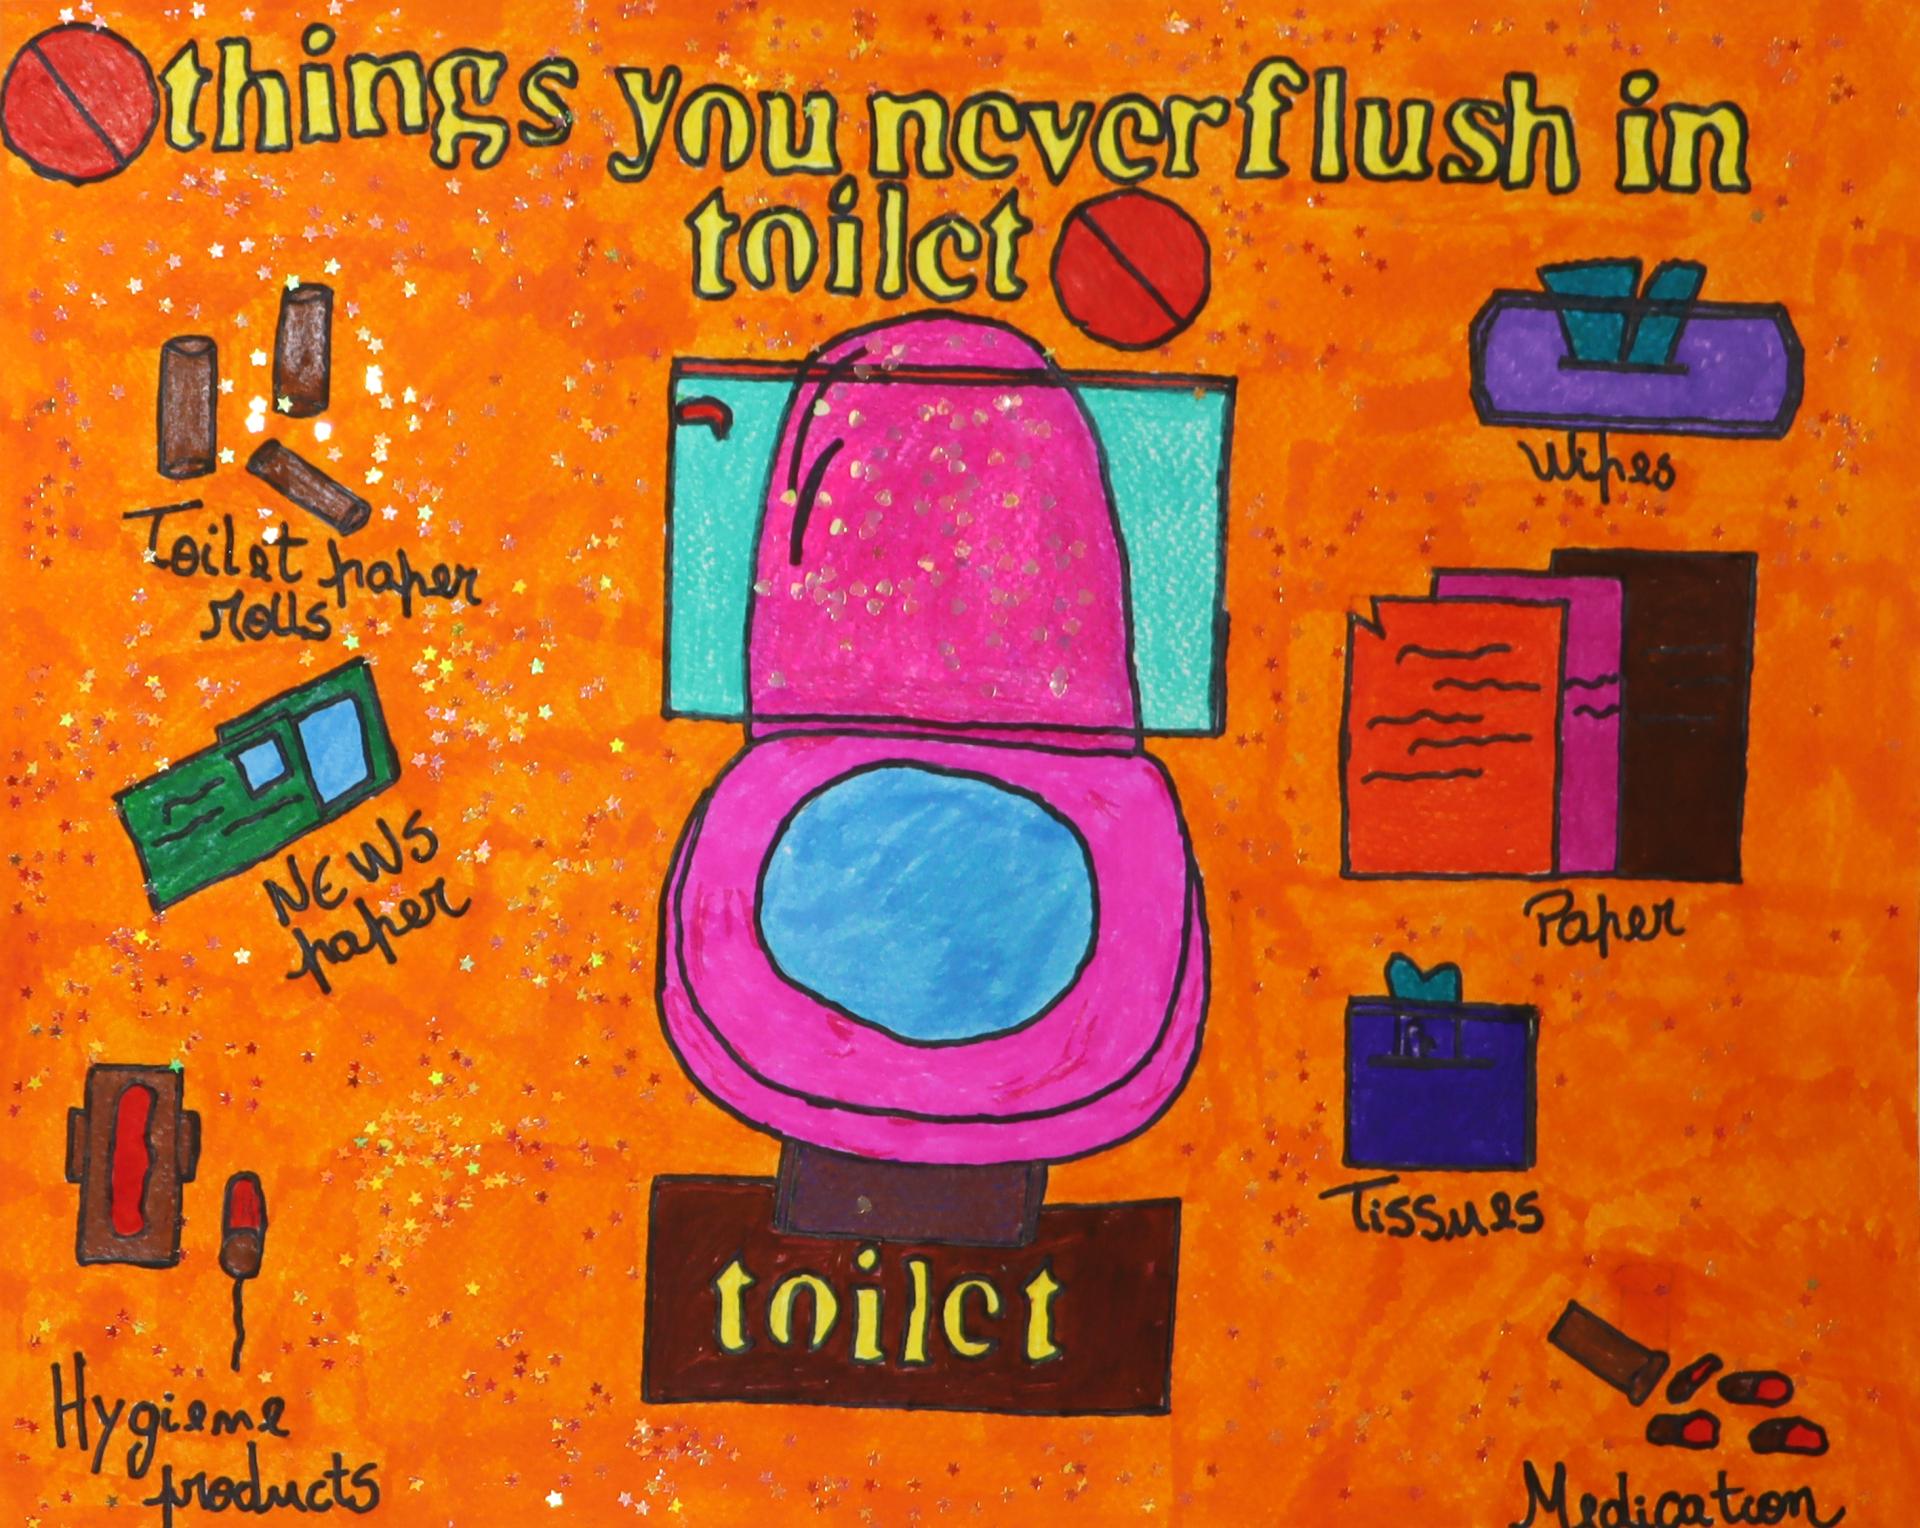 things you never flush in
toilet
Toilet paper
rolls
Wipes
NEWS
paper
Paper
Tissues
toilet
Hygiene
products
Medication